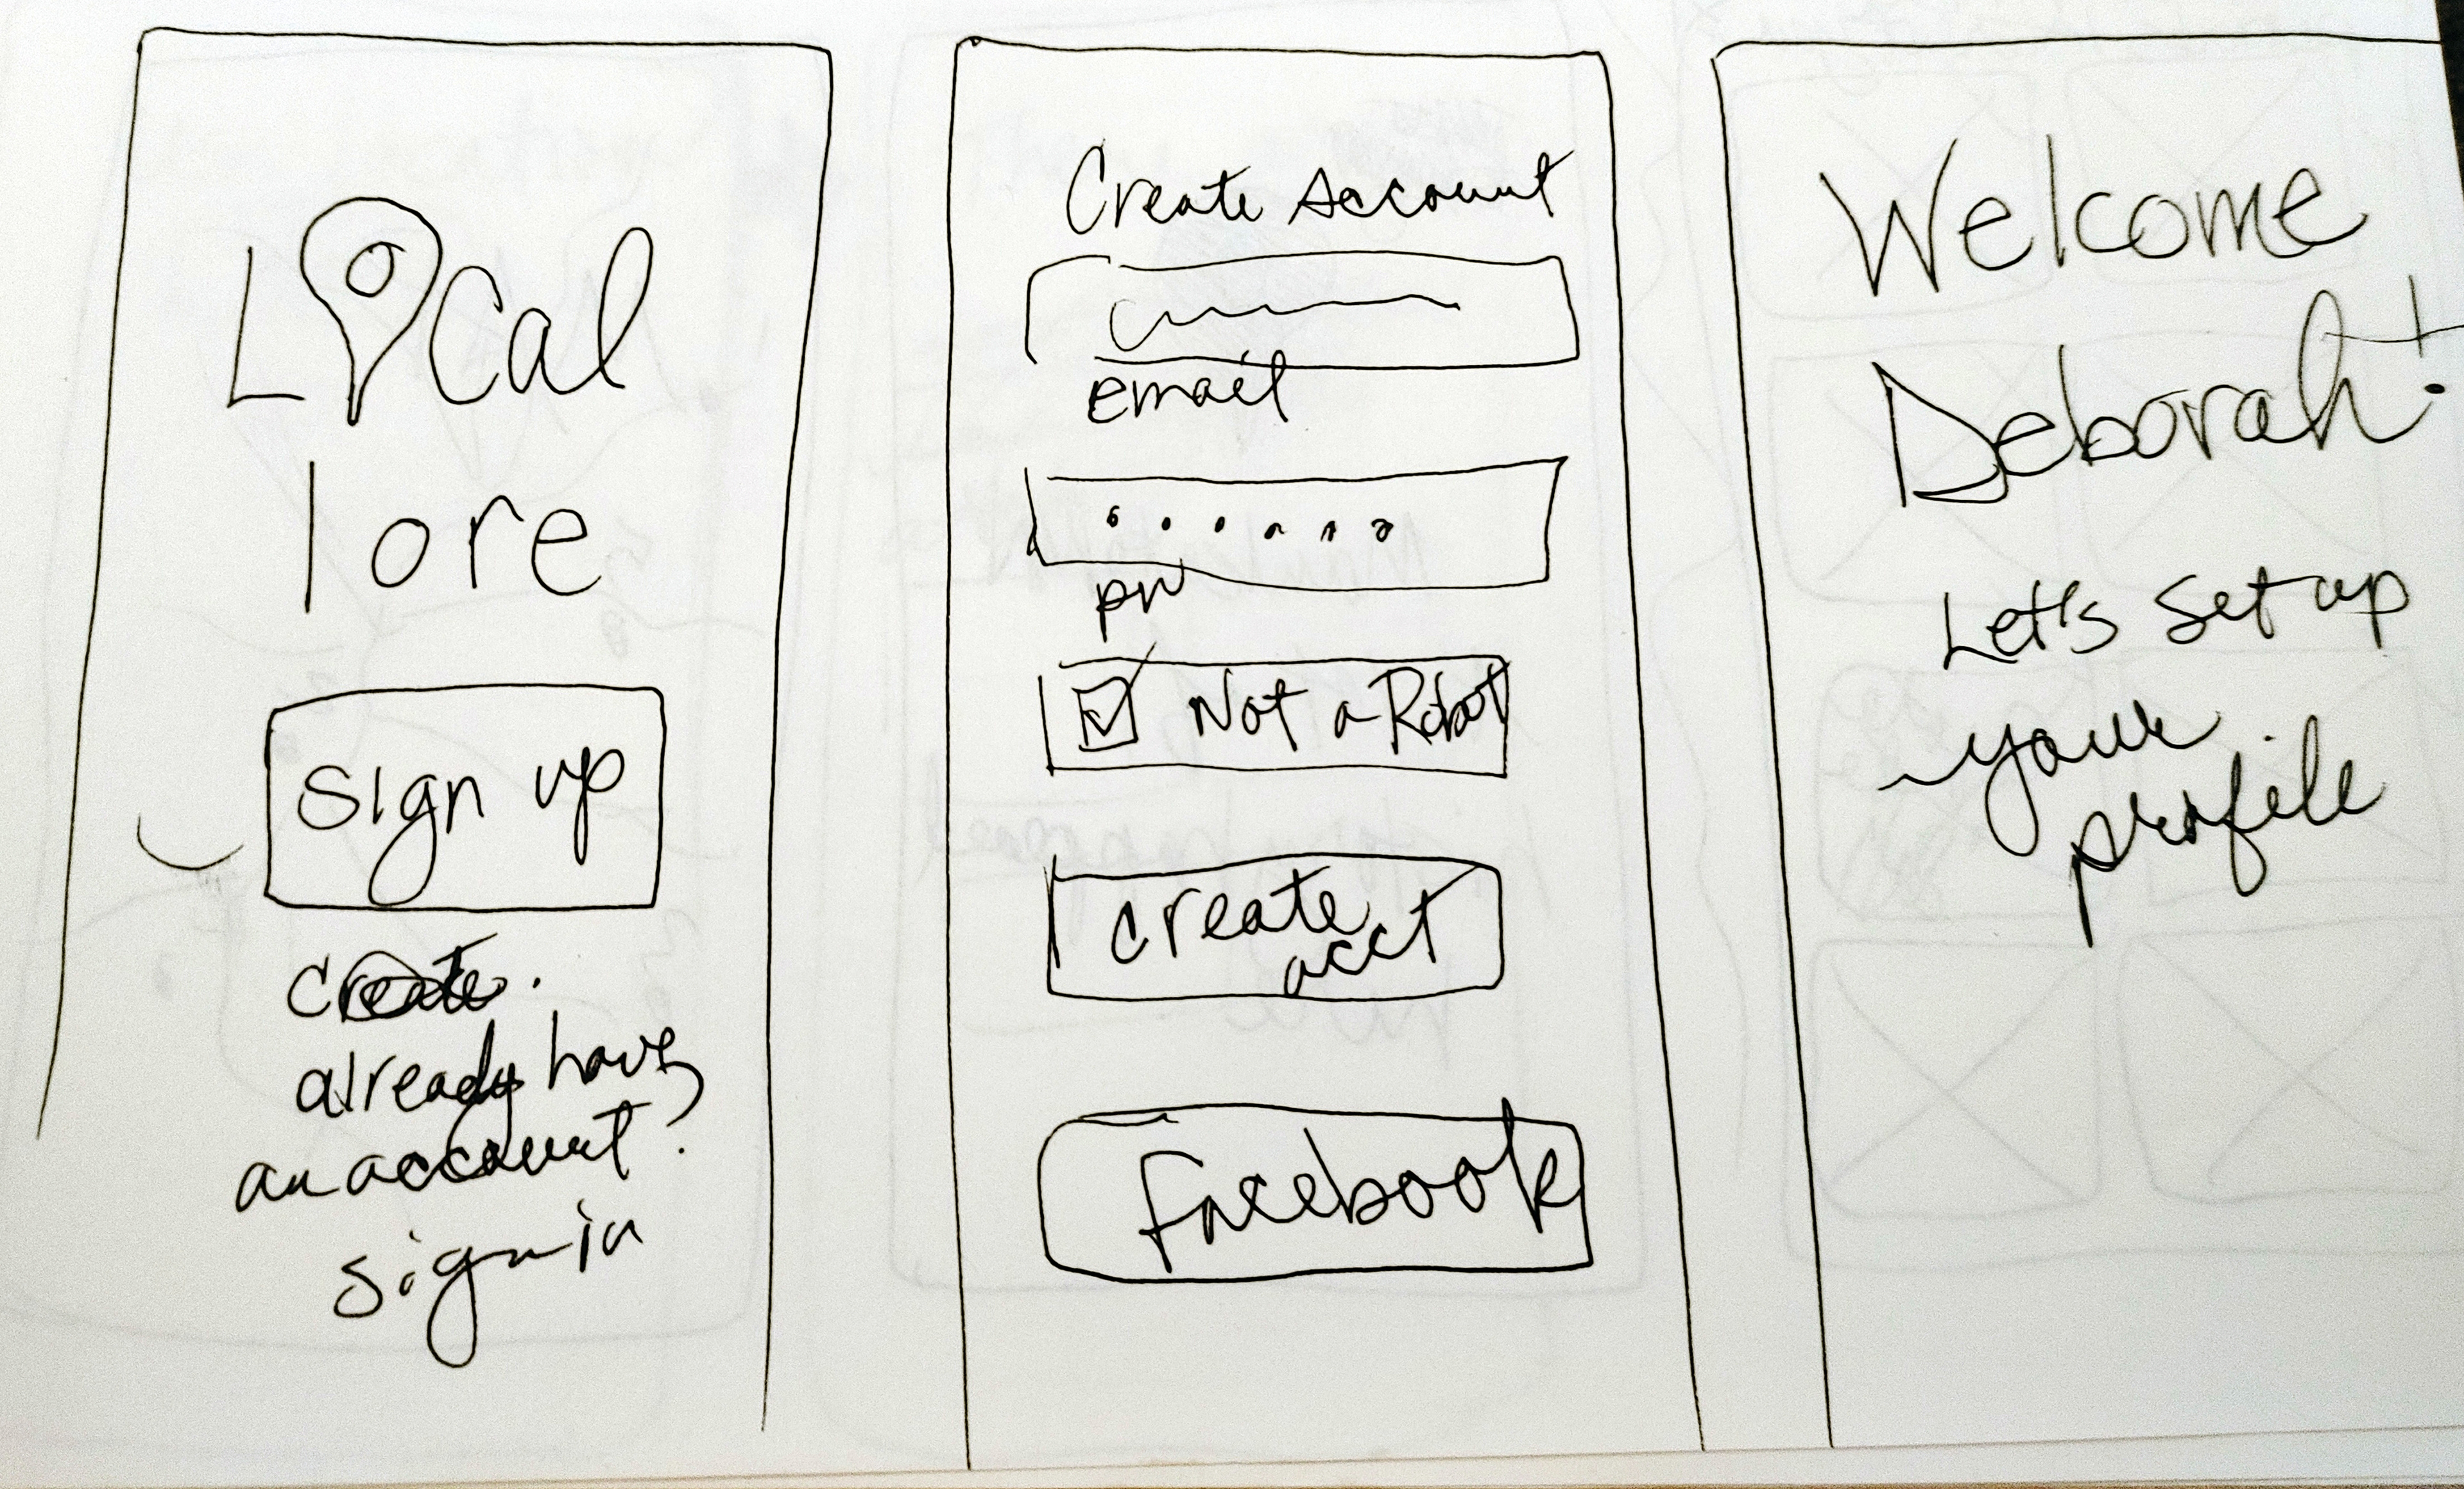 Local
lore
sign up
create.
already have
an account?
sign in
Create Account
email
pw
Not a Robot
create
acct
facebook
Welcome
Deborah!
Let's set up
your
profile